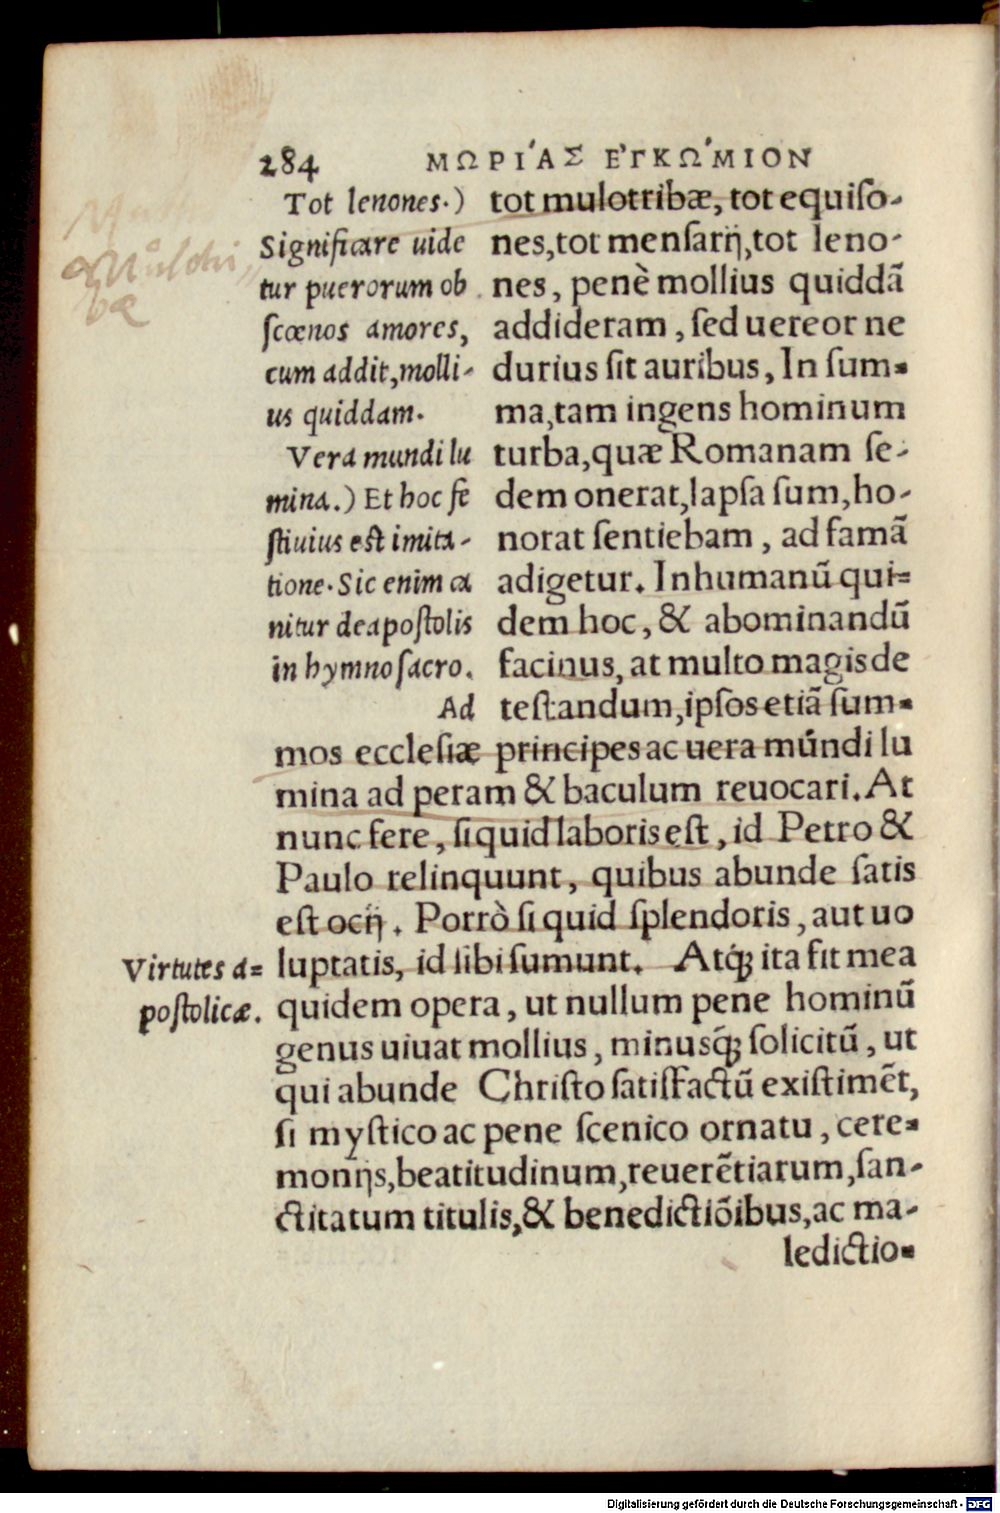 284 ΜΩΡΙ΄ΑΣ ΕΓΚΩ΄ΜΙΟΝ
Tot lenones.)
Significare uide
tur puerorum ob
ſcœnos amores,
cum addit, molli-
us quiddam.
Vera mundi lu
mina.) Et hoc fe
ſtiuius est imita-
tione. Sic enim ca
nitur de apoſtolis
in hymno ſacro.
Ad
tot mulotribæ, tot equiſo-
nes, tot menſarij, tot leno-
nes, penè mollius quiddã
addideram, ſed uereor ne
durius ſit auribus, In ſum-
ma, tam ingens hominum
turba, quæ Romanam ſe-
dem onerat, lapſa ſum, ho-
norat ſentiebam, ad famã
adigetur. Inhumanũ qui-
dem hoc, & abominandũ
facinus, at multo magis de
teſtandum, ipſos etiã ſum-
mos eccleſiæ principes ac uera mundi lu
mina ad peram & baculum reuocari. At
nunc fere, ſi quid laboris eſt, id Petro &
Paulo relinquunt, quibus abunde ſatis
eſt ocij. Porrò ſi quid ſplendoris, aut uo
luptatis, id ſibi ſumunt. Atq́ꝫ ita fit mea
Virtutes a-
poſtolicæ.
quidem opera, ut nullum pene hominũ
genus uiuat mollius, minusq́ꝫ ſolicitũ, ut
qui abunde Chriſto ſatisfactũ exiſtimẽt,
ſi myſtico ac pene ſcenico ornatu, cere-
monijs, beatitudinum, reuerẽtiarum, ſan-
ctitatum titulis, & benedictiõibus, ac ma-
ledictio-
Digitalisierung gefördert durch die Deutsche Forschungsgemeinschaft - DFG